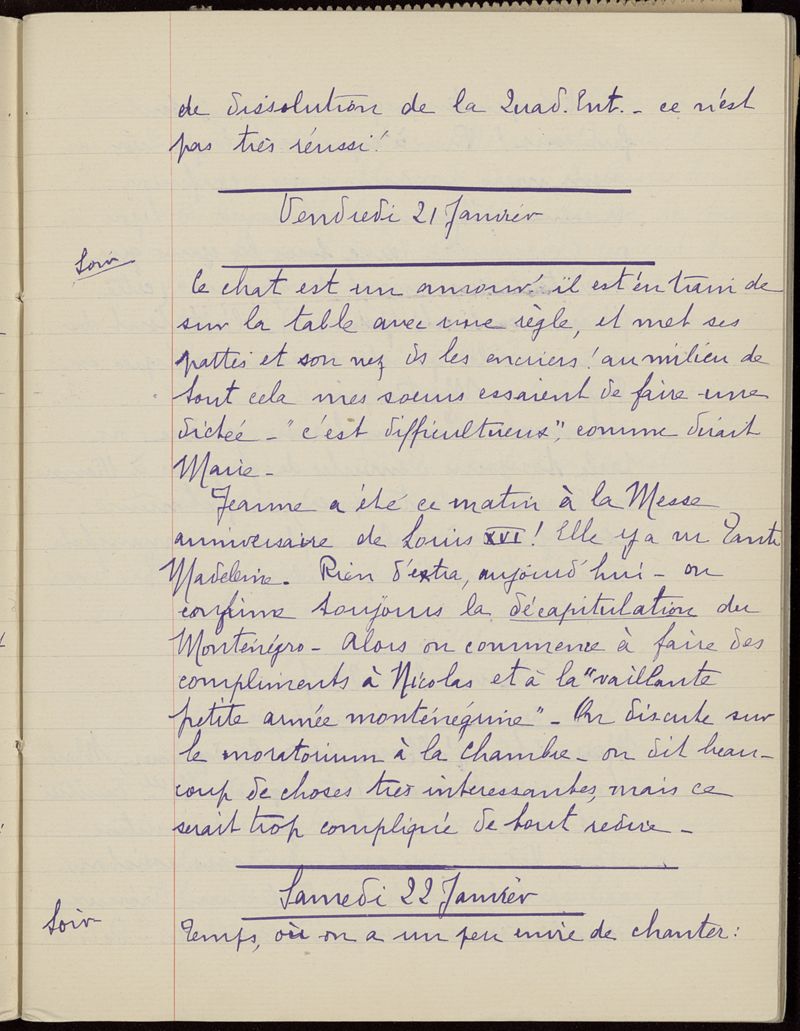 de dissolution de la Quad. Ent. - ce n'est
pas très réussi!
Vendredi 21 Janvier
Soir
Ce chat est un amour: il est en train de
sur la table avec une règle, et met ses
pattes et son nez ds les encriers! au milieu de
tout cela mes soeurs essaient de faire une
dictée - "c'est difficultueux", comme dirait
Marie -
Jeanne a été ce matin à la Messe
anniversaire de Louis XVI! Elle y a vu Tante
Madeleine. Rien d'extra, aujourd'hui - on
confirme toujours la décapitulation du
Monténégro - Alors on commence à faire des
compliments à Nicolas et à la "vaillante
petite armée monténégrine" - On discute sur
le moratorium à la Chambre - on dit beau-
coup de choses très intéressantes, mais ce
serait trop compliqué de tout redire -
Samedi 22 Janvier
Soir
Temps, où on a un peu envie de chanter: